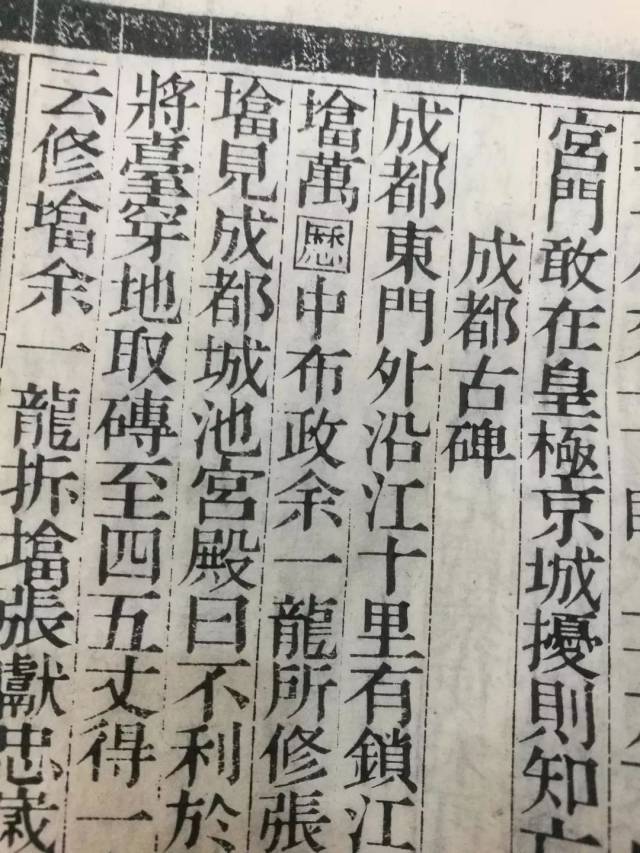 宮門敢在皇極京城擾則知
成都古碑
成都東門外沿江十里有鎖江
墖萬曆中布政余一龍所修張
墖見成都城池宮殿曰不利於
將臺穿地取磚至四五丈得一
云修墖余一龍拆墖張獻忠歲